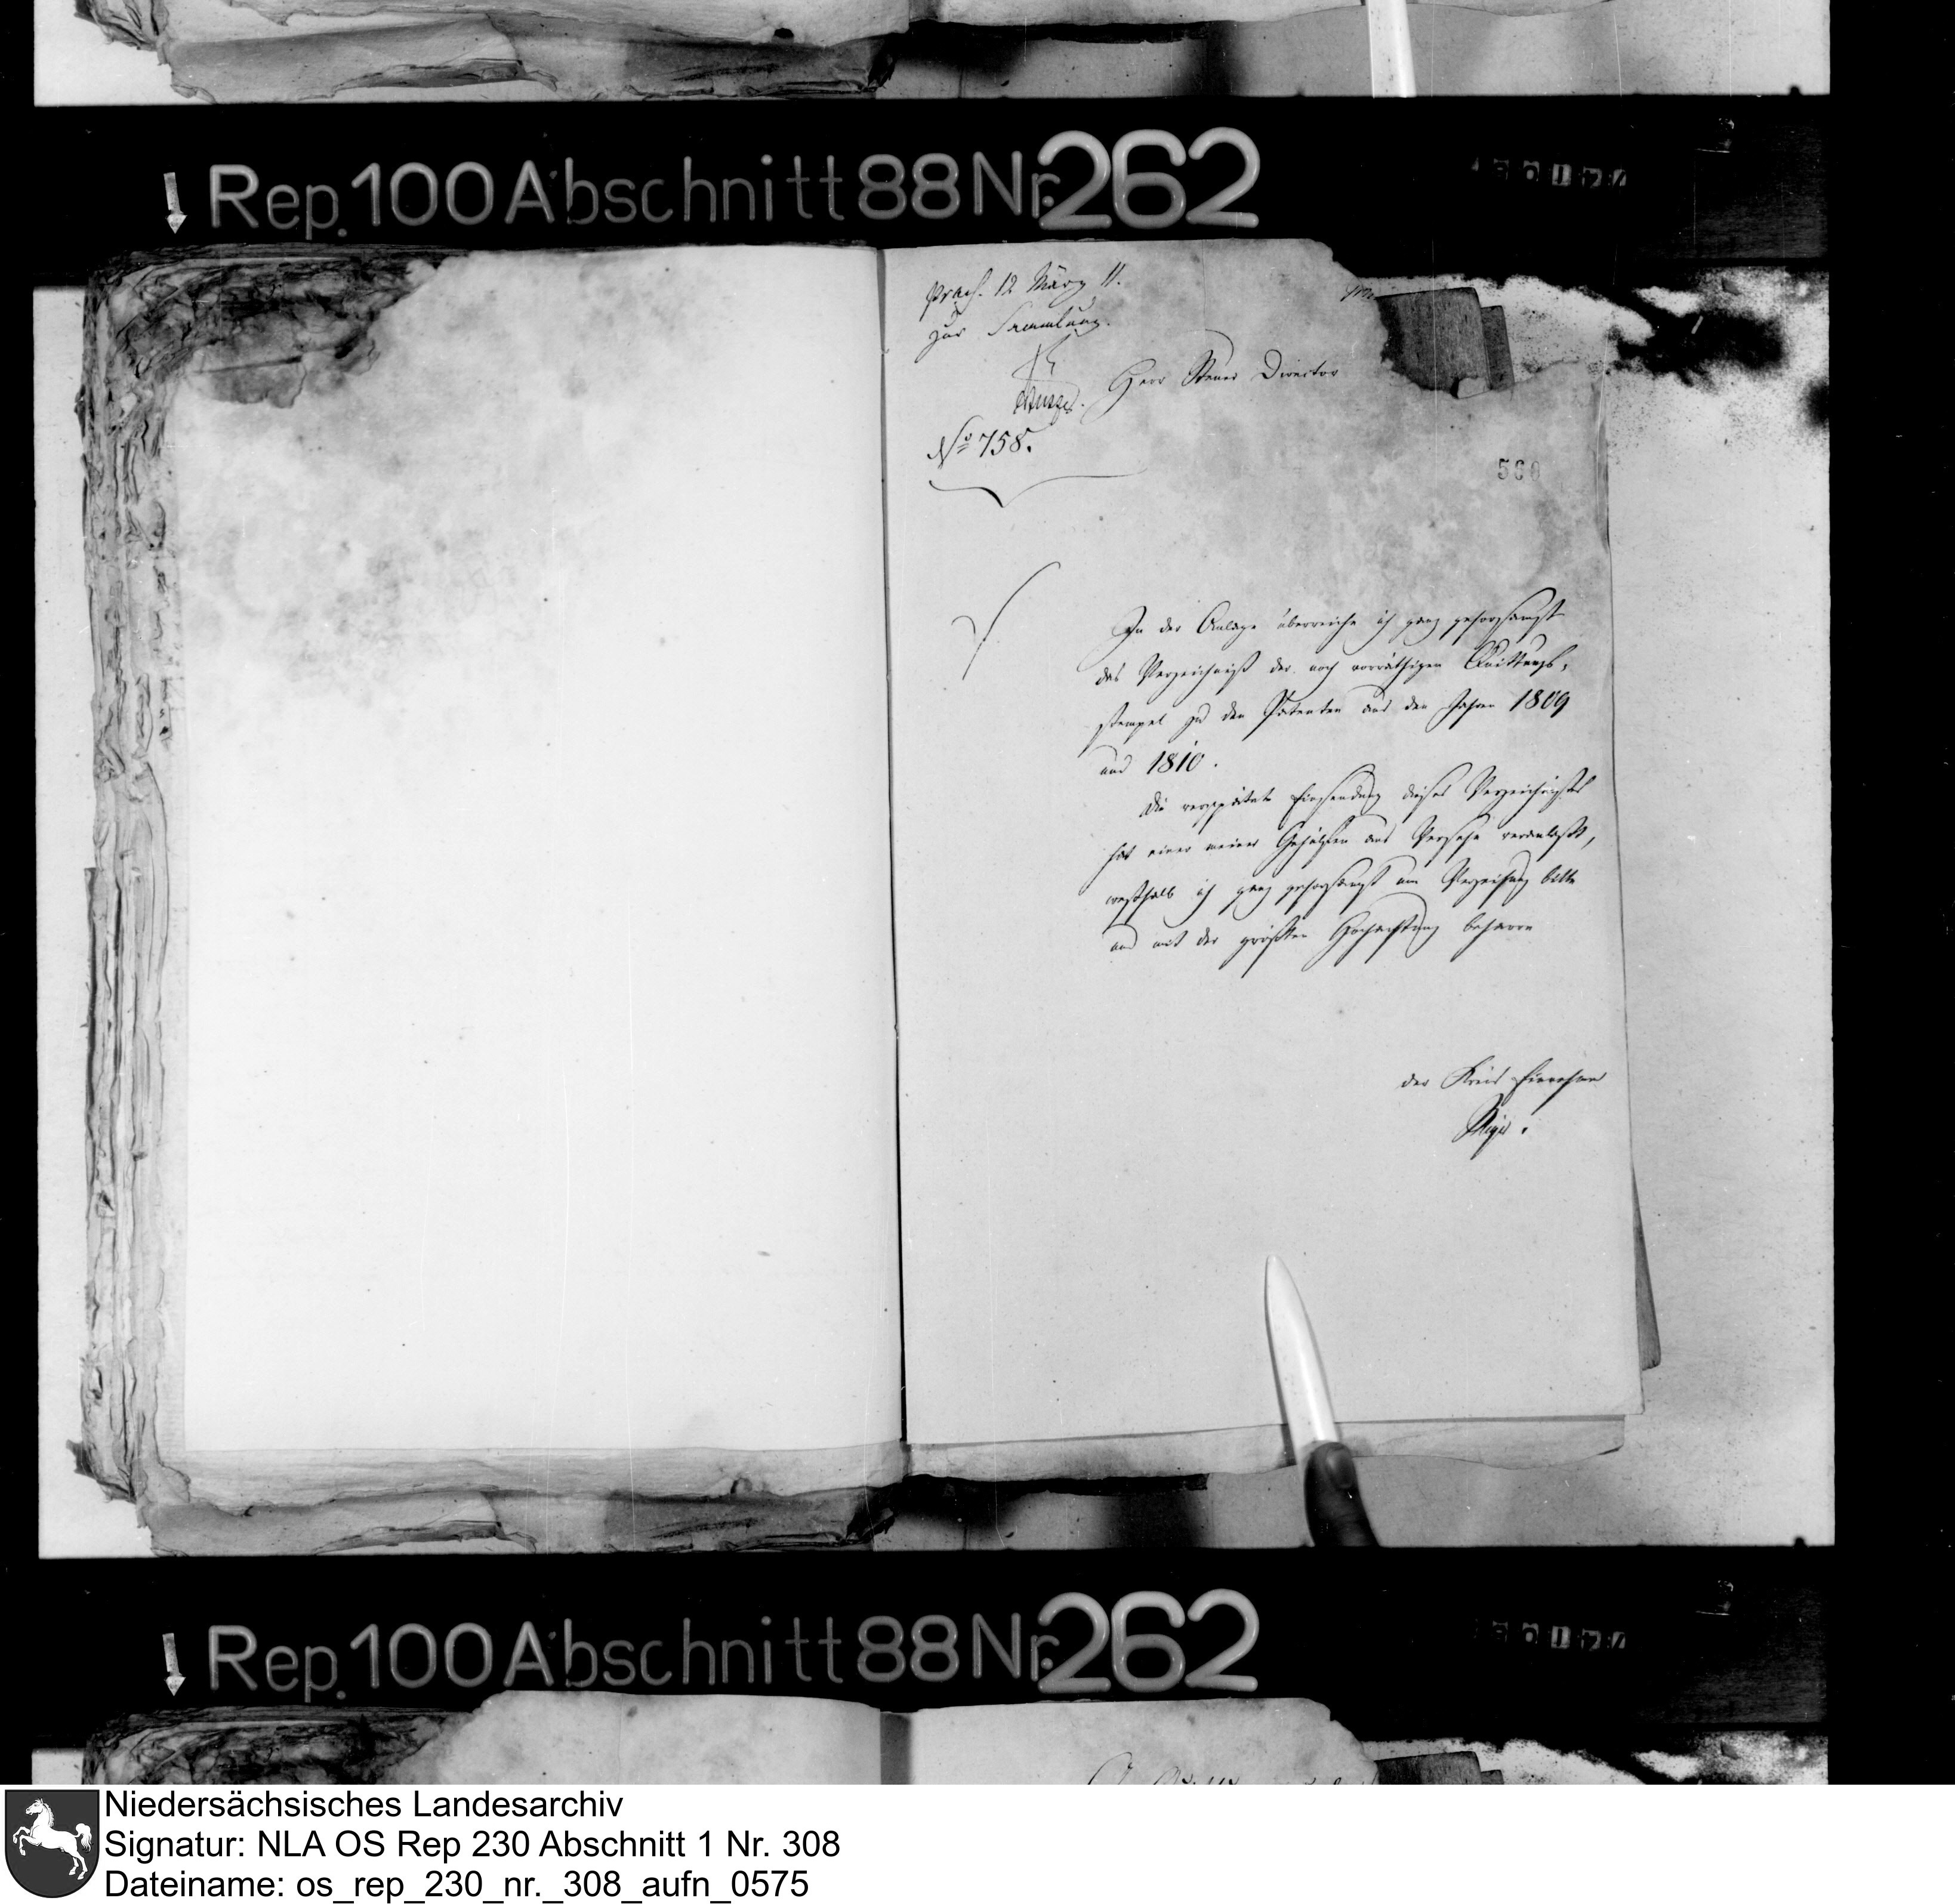 Rep. 100 Abschnitt 88 Nr. 262
praes. 12 März 11.
zur Sammlung.
Herr Steuer Director
No 758.
560
In der Anlage überreiche ich ganz gehorsamst
das Verzeichniß der noch vorräthigen Quittungs-
stempel zu den Patenten aus den Jahren 1809
und 1810.
Die verspätete Einsendung dieses Verzeichnißes
hat einer meiner Gehülfen aus Versehn veranlaßt,
weshalb ich ganz gehorsamst um Verzeihung bitte
und mit der größten Hochachtung beharre
der Kreis Einnehmer
Rep. 100 Abschnitt 88 Nr. 262
Niedersächsisches Landesarchiv
Signatur: NLA OS Rep 230 Abschnitt 1 Nr. 308
Dateiname: os_rep_230_nr._308_aufn_0575